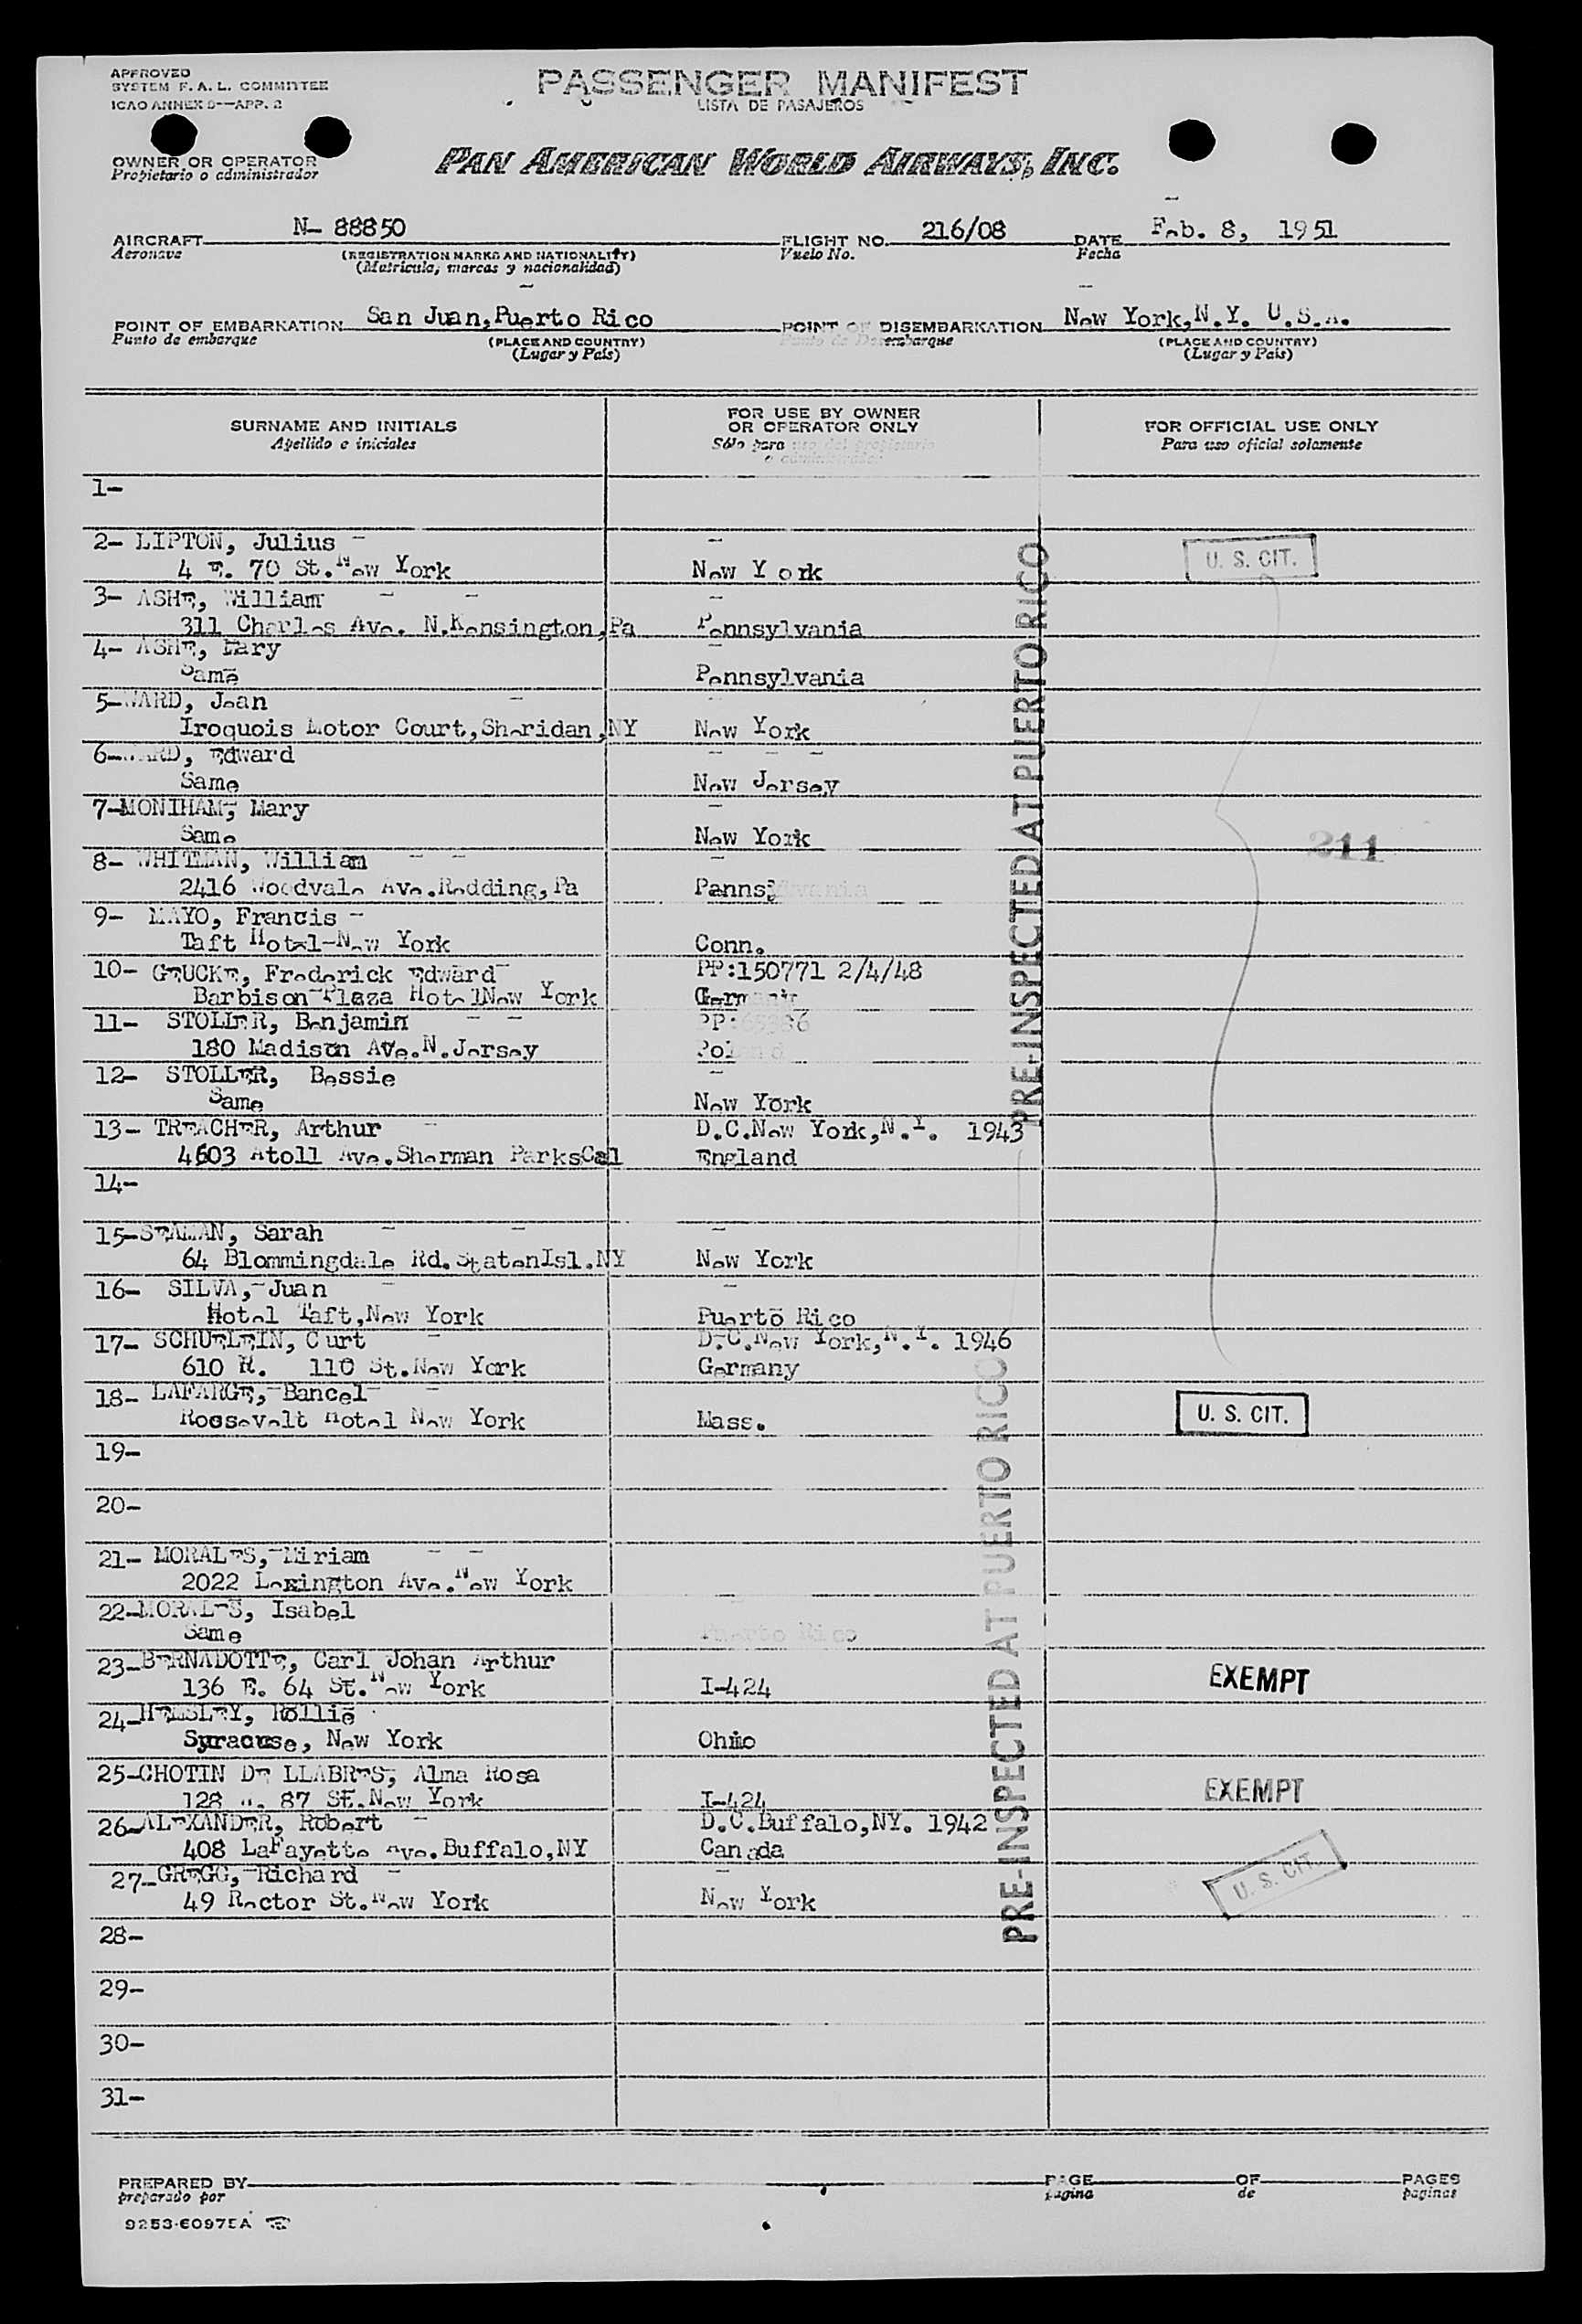 APPROVED
SYSTEM F. A. L. COMMITTEE
ICAO ANNEX 9—APP. 2
PASSENGER MANIFEST
LISTA DE PASAJEROS
OWNER OR OPERATOR
Propietario o administrador
PAN AMERICAN WORLD AIRWAYS, INC.
AIRCRAFT N- 88850 FLIGHT NO. 216/08 DATE Feb. 8, 1951
Aeronave (REGISTRATION MARKS AND NATIONALITY) Vuelo No. Fecha
(Matricula, marcas y nacionalidad)
POINT OF EMBARKATION San Juan, Puerto Rico POINT OF DISEMBARKATION New York, N.Y. U.S.A.
Punto de embarque (PLACE AND COUNTRY) Punto de Desembarque (PLACE AND COUNTRY)
(Lugar y País) (Lugar y País)
SURNAME AND INITIALS FOR USE BY OWNER OR OPERATOR ONLY FOR OFFICIAL USE ONLY
Apellido e iniciales Sólo para uso del propietario o administrador Para uso oficial solamente
1-
2- LIPTON, Julius
4 E. 70 St. New York New York U. S. CIT.
3- ASHE, William
311 Charles Ave. N.Kensington,Pa Pennsylvania
4- ASHE, Mary
Same Pennsylvania
5-WARD, Jean
Iroquois Motor Court,Sheridan,NY New York
6-WARD, Edward
Same New Jersey
7-MONIHAM, Mary
Same New York
211
8- WHITMAN, William
2416 Woodvale Ave.Redding,Pa Pannsylvania
9- MAYO, Francis
Taft Hotel-New York Conn.
10- GEUCKE, Frederick Edward PP:150771 2/4/48
Barbison Plaza HotelNew York Germany
11- STOLLER, Benjamin PP:
180 Madison Ave.N.Jersey Poland
12- STOLLER, Bessie
Same New York
13- TREACHER, Arthur D.C.New York,N.Y. 1943
4603 Atoll Ave.Sherman ParksCal England
PRE-INSPECTED AT PUERTO RICO
14-
15-SEAMAN, Sarah
64 Blommingdale Rd.StatenIsl.NY New York
16- SILVA, Juan
Hotel Taft,New York Puerto Rico
17- SCHUELEIN, Curt D.C.New York,N.Y. 1946
610 W. 110 St.New York Germany
18- LAFARGE, Bancel
Roosevelt Hotel New York Mass. U. S. CIT.
19-
20-
21- MORALES, Miriam
2022 Lexington Ave.New York
22-MORALES, Isabel
Same Puerto Rico
23-BERNADOTTE, Carl Johan Arthur
136 E. 64 St.New York I-424 EXEMPT
24-HEMSLEY, Rollie
Syracuse, New York Ohio
25-CHOTIN DE LLABRES, Alma Rosa
128 W. 87 St.New York I-424 EXEMPT
26-ALEXANDER, Robert D.C.Buffalo,NY. 1942
408 LaFayette Ave.Buffalo,NY Canada
27-GREGG, Richard
49 Rector St.New York New York U. S. CIT.
PRE-INSPECTED AT PUERTO RICO
28-
29-
30-
31-
PREPARED BY PAGE OF PAGES
preparado por pagina de paginas
9253-6097EA